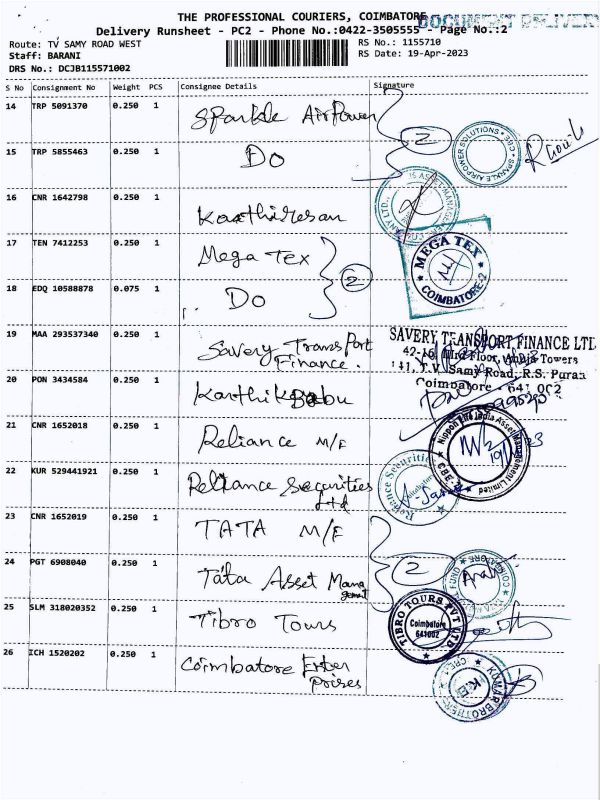 THE PROFESSIONAL COURIERS, COIMBATORE
DOCUMENT DELIVER
Delivery Runsheet - PC2 - Phone No.:0422-3505555 - Page No.:2
Route: TV SAMY ROAD WEST
RS No.: 1155710
Staff: BARANI
RS Date: 19-Apr-2023
DRS No.: DCJB115571002
S No Consignment No Weight PCS Consignee Details Signature
14 TRP 5091370 0.250 1 Sparkle AirPower
2
15 TRP 5855463 0.250 1 Do
SPARKLE AIRPOWER SOLUTIONS * CBE
16 CNR 1642798 0.250 1 Karthiresan
17 TEN 7412253 0.250 1 Mega Tex
2
MEGA TEX
COIMBATORE-2
18 EDQ 10588878 0.075 1 Do
19 MAA 293537340 0.250 1 Savery Transport
Finance.
SAVERY TRANSPORT FINANCE LTD
42-16, IIIrd Floor, Ambja Towers
141, T.V. Samy Road, R.S. Puram
Coimbatore - 641 002
20 PON 3434584 0.250 1 Karthik Babu
21 CNR 1652018 0.250 1 Reliance M/F
Nippon Life India Asset Management Limited
CBE-2
22 KUR 529441921 0.250 1 Reliance Securities
Ltd
Reliance Securities
23 CNR 1652019 0.250 1 TATA M/F
2
24 PGT 6908040 0.250 1 Tata Asset Mana
gemt
25 SLM 318020352 0.250 1 Tibro Tours
TIBRO TOURS PVT LTD
Coimbatore
641002
26 ICH 1520202 0.250 1 Coimbatore Enter
prises
KUMAR BROTHERS